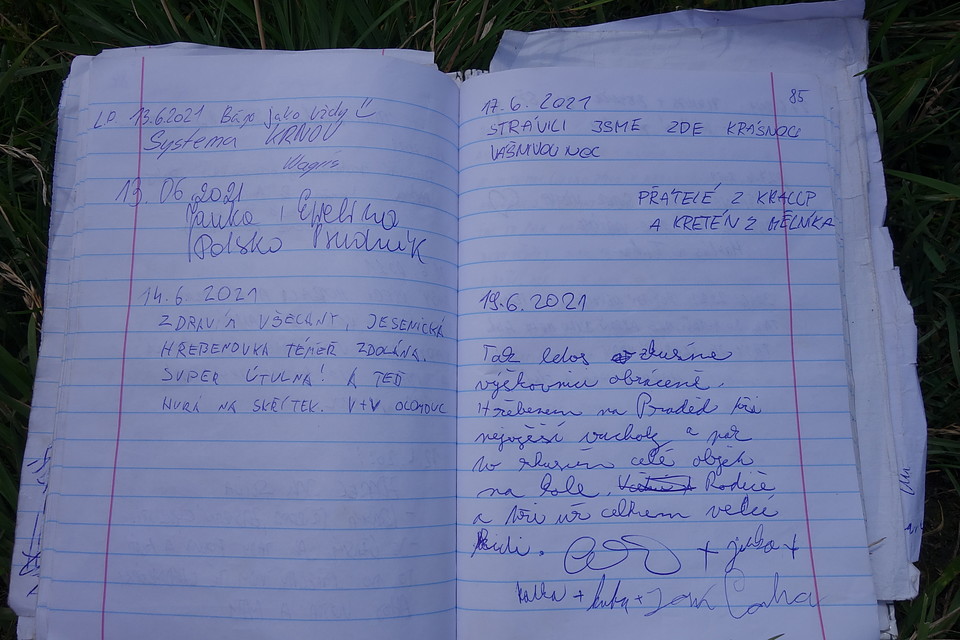 LP 13.6.2021 Bájo jako vždy!!
Systema KRNOV
Wagris
13.06.2021
Janka i Ewelina
Polsko Prudnik
14.6. 2021
ZDRAVÍM VŠECHNY, JESENICKÁ
HŘEBENOVKA TÉMĚŘ ZDOLÁNA.
SUPER ÚTULNA! A TEĎ
HURÁ NA SKŘÍTEK. V+V OLOMOUC
85
17.6. 2021
STRÁVILI JSME ZDE KRÁSNOU
VAŠNIVOU NOC
PŘÁTELÉ Z KRALUP
A KRETÉN Z MĚLNÍKA
19.6.2021
Tak letos zkusíme
výškovnici obráceně.
Hřebenem na Praděd tři
nejvyšší vrcholy a pak
to zkusíme celé objet
na kole. Rodiče
a tři už celkem velké
lidi.
+ +
+ kuba + Jan